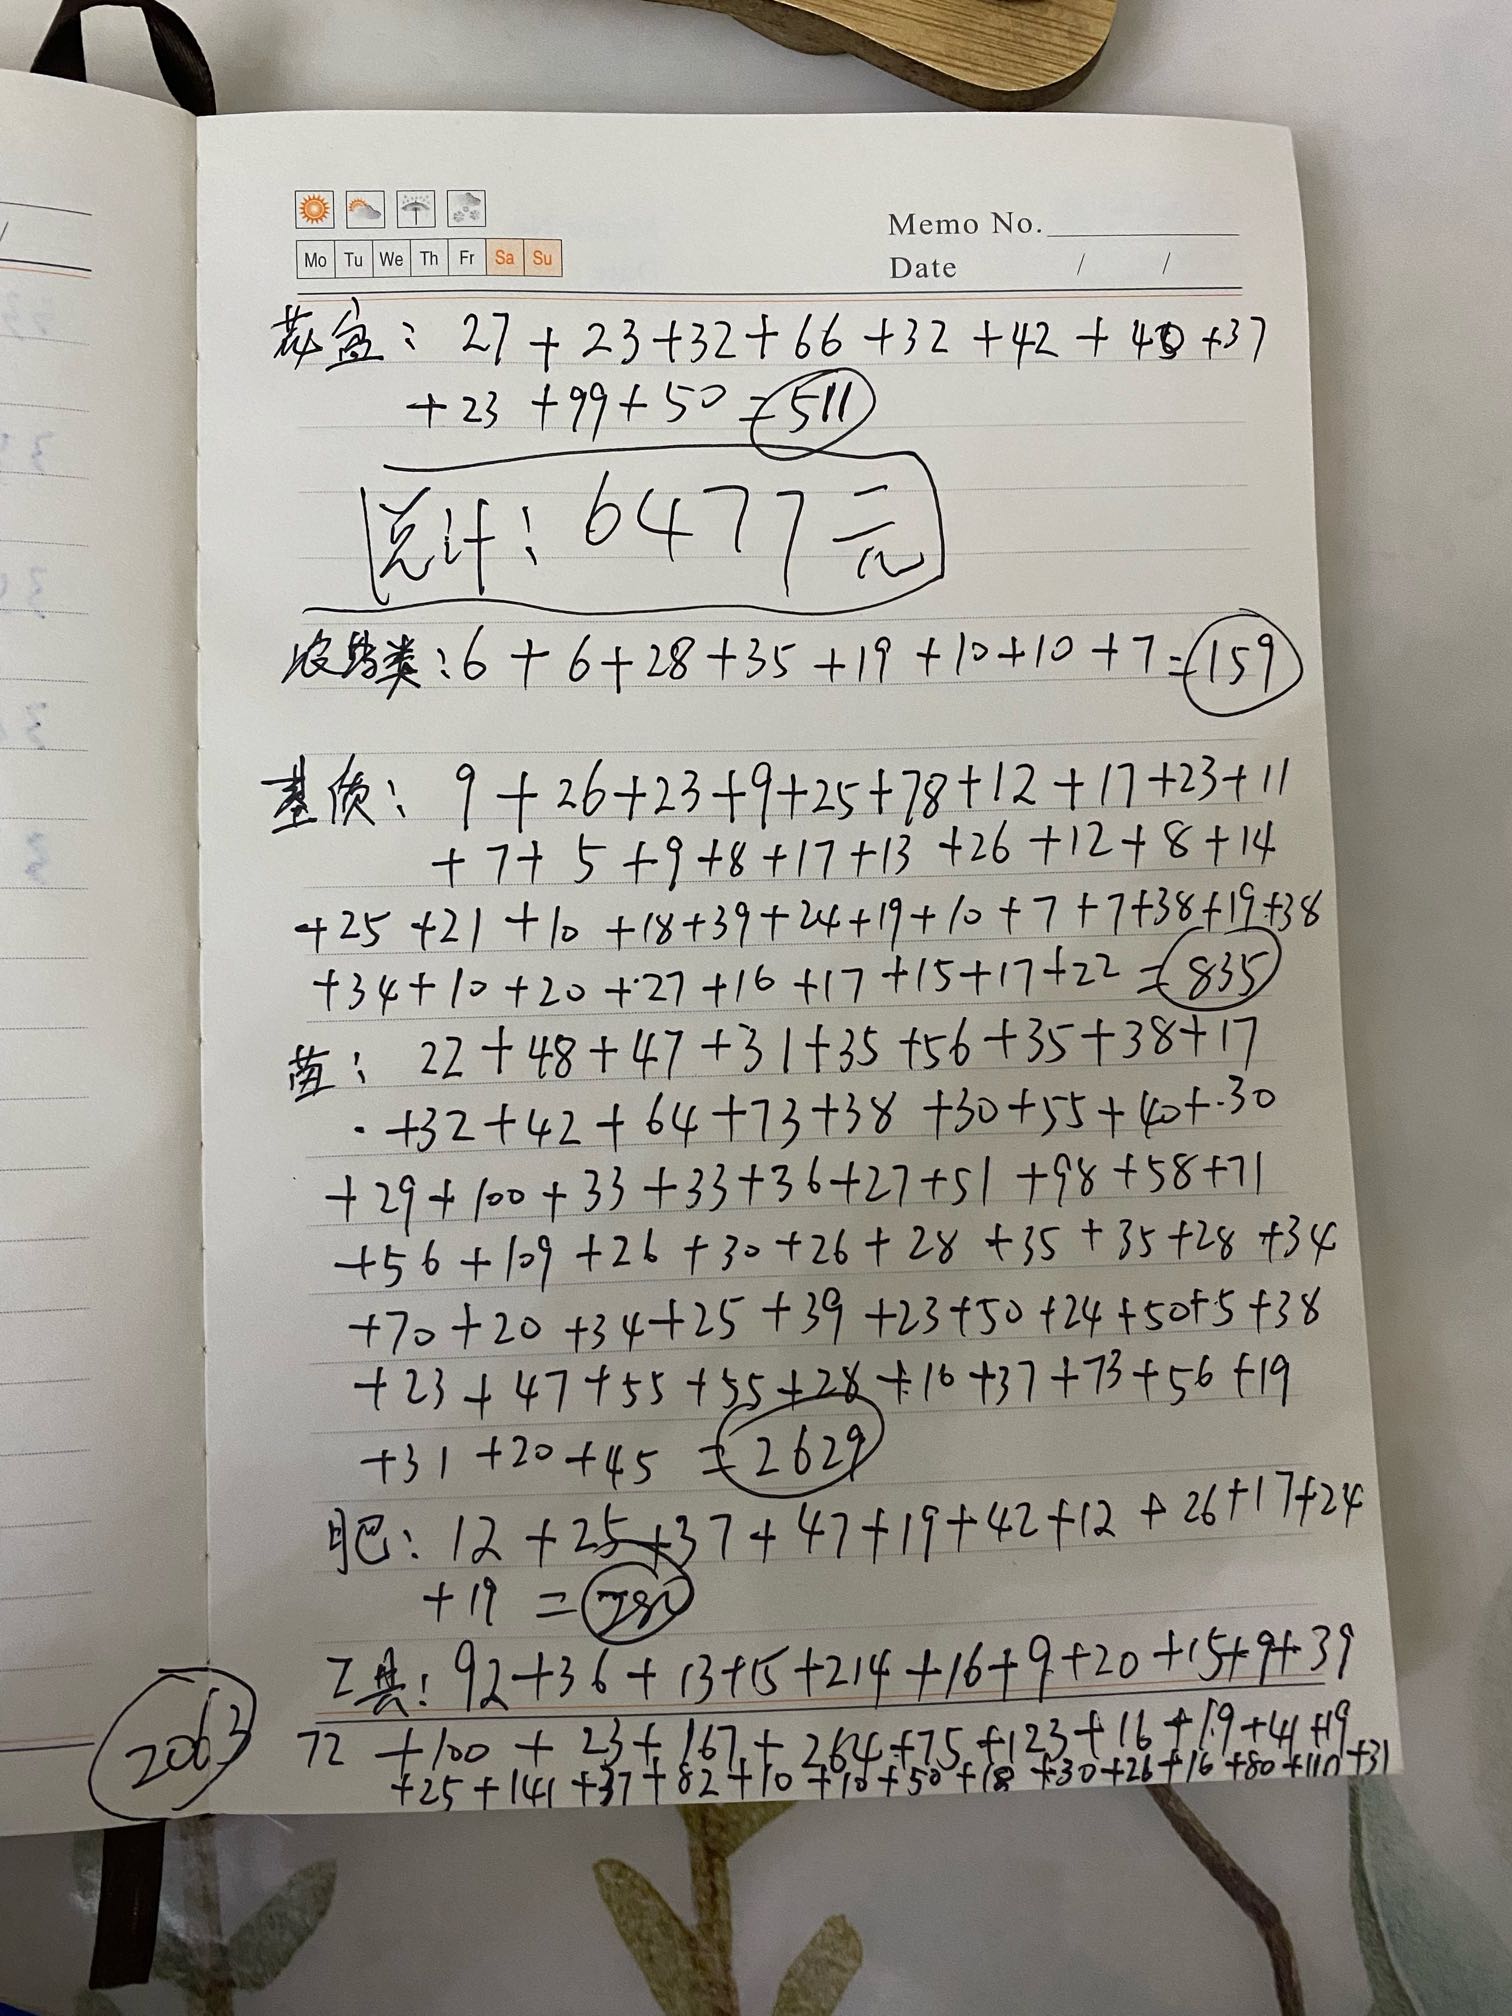 Mo Tu We Th Fr Sa Su
Memo No.
Date / /
花盆: 27 + 23 + 32 + 66 + 32 + 42 + 40 + 37
+ 23 + 99 + 50 = 511
总计: 6477元
农药类: 6 + 6 + 28 + 35 + 19 + 10 + 10 + 7 = 159
基质: 9 + 26 + 23 + 9 + 25 + 78 + 12 + 17 + 23 + 11
+ 7 + 5 + 9 + 8 + 17 + 13 + 26 + 12 + 8 + 14
+ 25 + 21 + 10 + 18 + 39 + 24 + 19 + 10 + 7 + 7 + 38 + 19 + 38
+ 34 + 10 + 20 + 27 + 16 + 17 + 15 + 17 + 22 = 835
苗: 22 + 48 + 47 + 31 + 35 + 56 + 35 + 38 + 17
+ 32 + 42 + 64 + 73 + 38 + 30 + 55 + 40 + 30
+ 29 + 100 + 33 + 33 + 36 + 27 + 51 + 98 + 58 + 71
+ 56 + 109 + 26 + 30 + 26 + 28 + 35 + 35 + 28 + 34
+ 70 + 20 + 34 + 25 + 39 + 23 + 50 + 24 + 50 + 5 + 38
+ 23 + 47 + 55 + 55 + 28 + 16 + 37 + 73 + 56 + 19
+ 31 + 20 + 45 = 2629
肥: 12 + 25 + 37 + 47 + 19 + 42 + 12 + 26 + 17 + 24
+ 19 = 280
工具: 92 + 36 + 13 + 15 + 214 + 16 + 9 + 20 + 15 + 9 + 39
72 + 100 + 23 + 167 + 264 + 75 + 123 + 16 + 19 + 41 + 19
+ 25 + 141 + 37 + 82 + 10 + 10 + 50 + 18 + 30 + 26 + 16 + 80 + 110 + 31
2063